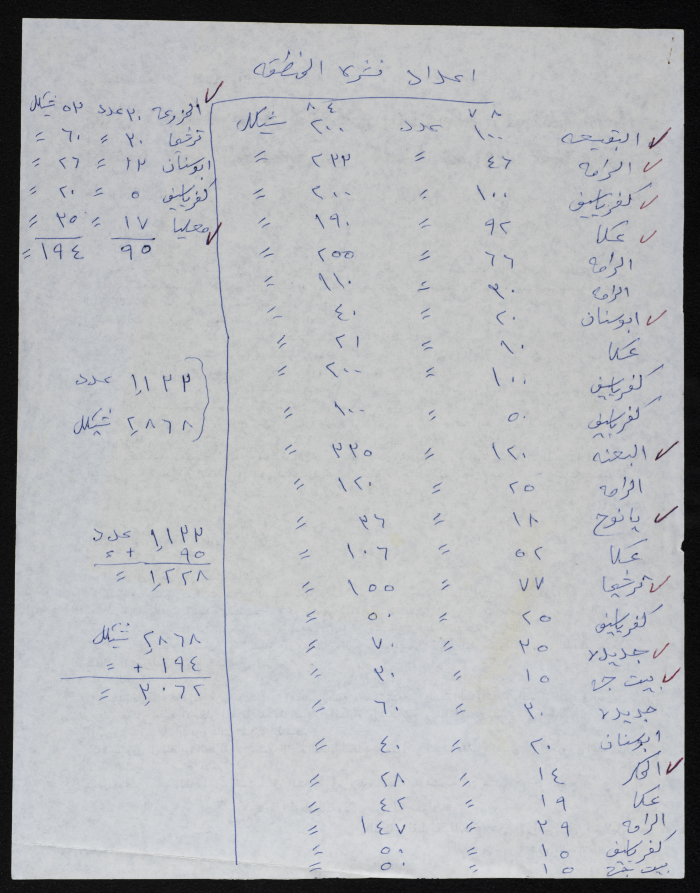 اعداد نشرة المنطقه
٧ ٨ ٨ ٤
البقيعه ١٠٠ عدد ٢٠٠ شيكل
الرامه ٤٦ = ٢٣٣ =
كفرياسيف ١٠٠ = ٢٠٠ =
عكا ٩٢ = ١٩٠ =
الرامه ٦٦ = ٢٥٥ =
الرامه ٣٠ = ١١٠ =
ابوسنان ٢٠ = ٤٠ =
عكا ١٠ = ٢١ =
كفرياسيف ١٠٠ = ٢٠٠ =
كفرياسيف ٥٠ = ١٠٠ =
البعنه ١٢٠ = ٣٣٥ =
الرامه ٢٥ = ١٢٠ =
يانوح ١٨ = ٣٦ =
عكا ٥٢ = ١٠٦ =
ترشيحا ٧٧ = ١٥٥ =
كفرياسيف ٢٥ = ٥٠ =
جديده ٣٥ = ٧٠ =
بيت جن ١٥ = ٣٠ =
جديده ٣٠ = ٦٠ =
ابوسنان ٢٠ = ٤٠ =
المكر ١٤ = ٢٨ =
عكا ١٩ = ٤٢ =
الرامه ٣٩ = ١٤٧ =
كفرياسيف ١٥ = ٥٠ =
بيت جن ١٥ = ٥٠ =
المزرعه ٣٠ عدد ٥٣ شيكل
ترشيحا ٣٠ = ٦٠ =
ابوسنان ١٣ = ٢٦ =
كفرياسيف ٥ = ٢٠ =
معليا ١٧ = ٣٥ =
٩٥ ١٩٤ =
١,١٣٣ عدد
٢,٨٦٨ شيكل
١,١٣٣ عدد
٩٥ + =
١,٢٢٨ =
٢,٨٦٨ شيكل
١٩٤ + =
٣,٠٦٢ =